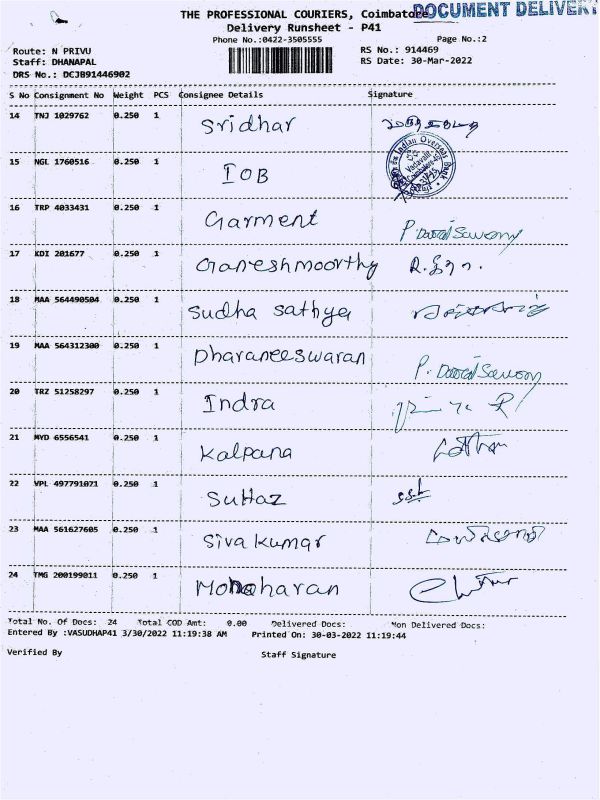 DOCUMENT DELIVERY
THE PROFESSIONAL COURIERS, Coimbatore
Delivery Runsheet - P41
Phone No.:0422-3505555
Page No.:2
Route: N PRIVU
RS No.: 914469
Staff: DHANAPAL
RS Date: 30-Mar-2022
DRS No.: DCJB91446902
S No Consignment No Weight PCS Consignee Details Signature
14 TNJ 1029762 0.250 1 Sridhar
15 NGL 1760516 0.250 1 IOB
Indian Overseas Bank
Vadavalli
Coimbatore
16 TRP 4033431 0.250 1 Garment P. David Sawony
17 KDI 201677 0.250 1 Ganeshmoorthy
18 MAA 564490504 0.250 1 Sudha sathya
19 MAA 564312300 0.250 1 Dharaneeswaran P. David Sawony
20 TRZ 51258297 0.250 1 Indra
21 MYD 6556541 0.250 1 Kalpana
22 VPL 497791071 0.250 1
23 MAA 561627605 0.250 1 Siva kumar
24 TMG 200199011 0.250 1 Manoharan
Total No. Of Docs: 24 Total COD Amt: 0.00 Delivered Docs: Non Delivered Docs:
Entered By :VASUDHAP41 3/30/2022 11:19:38 AM Printed On: 30-03-2022 11:19:44
Verified By Staff Signature